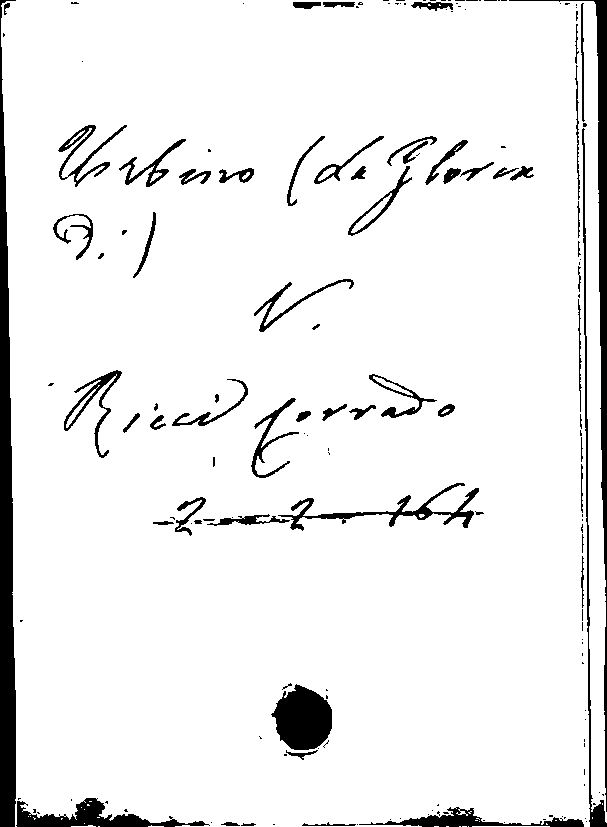 Urbino (La Gloria
D.:)
V.
Ricci Corrado
2 2. 164